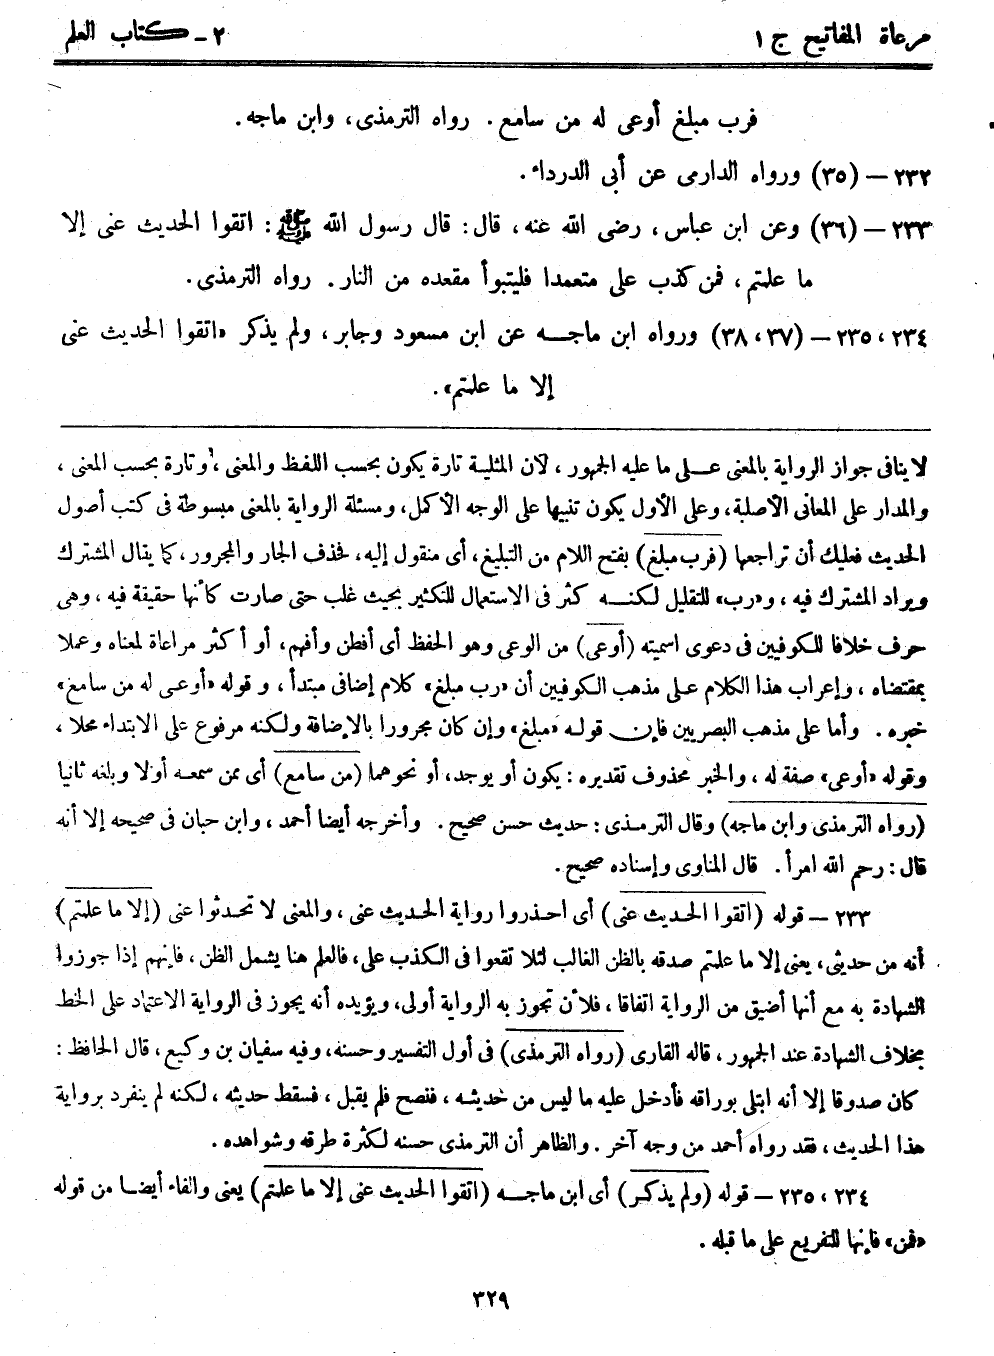 مرعاة المفاتيح ج ١
٢ – كتاب العلم
فرب مبلغ أوعى له من سامع. رواه الترمذى، وابن ماجه.
٢٣٢ – (٣٥) ورواه الدارمى عن أبى الدرداء.
٢٣٣ – (٣٦) وعن ابن عباس، رضى الله عنه، قال: قال رسول الله ﷺ: اتقوا الحديث عنى إلا
ما علمتم، فمن كذب على متعمدا فليتبوأ مقعده من النار. رواه الترمذى.
٢٣٤، ٢٣٥ – (٣٧، ٣٨) ورواه ابن ماجـــه عن ابن مسعود وجابر، ولم يذكر «اتقوا الحديث عنى
إلا ما علمتم».
لا ينافى جواز الرواية بالمعنى عـــلى ما عليه الجمهور، لأن المثلية تارة يكون بحسب اللفظ والمعنى، وتارة بحسب المعنى،
والمدار على المعانى الأصلية، وعلى الأول يكون تنبيها على الوجه الأكمل، ومسئلة الرواية بالمعنى مبسوطة فى كتب أصول
الحديث فعليك أن تراجعها (فرب مبلغ) بفتح اللام من التبليغ، أى منقول إليه، فحذف الجار والمجرور، كما يقال المشترك
ويراد المشترك فيه، و«رب» للتقليل لكنـــه كثر فى الاستعمال للتكثير بحيث غلب حتى صارت كأنها حقيقة فيه، وهى
حرف خلافا للكوفيين فى دعوى اسميته (أوعى) من الوعى وهو الحفظ أى أفطن وأفهم، أو أكثر مراعاة لمعناه وعملا
بمقتضاه، وإعراب هذا الكلام عـلى مذهب الكوفيين أن «رب مبلغ» كلام إضافى مبتدأ، و قوله «أوعى له من سامع»
خبره. وأما على مذهب البصريين فإن قولـه «مبلغ» وإن كان مجرورا بالإضافة ولكنه مرفوع على الابتداء محلا،
وقوله «أوعى» صفة له، والخبر محذوف تقديره: يكون أو يوجد، أو نحوهما (من سامع) أى ممن سمعـه أولا وبلغه ثانيا
(رواه الترمذى وابن ماجه) وقال الترمـذى: حديث حسن صحيح. وأخرجه أيضا أحمد، وابن حبان فى صحيحه إلا أنه
قال: رحم الله امرأ. قال المناوى وإسناده صحيح.
٢٣٣ – قوله (اتقوا الحـديث عنى) أى احـذروا رواية الحـديث عنى، والمعنى لا تحـدثوا عنى (إلا ما علمتم)
أنه من حديثى، يعنى إلا ما علمتم صدقه بالظن الغالب لئلا تقعوا فى الكذب على، فالعلم هنا يشمل الظن، فإنهم إذا جوزوا
الشهادة به مع أنها أضيق من الرواية اتفاقا، فلأن تجوز به الرواية أولى، ويؤيده أنه يجوز فى الرواية الاعتماد على الخط
بخلاف الشهادة عند الجمهور، قاله القارى (رواه الترمذى) فى أول التفسير وحسنه، وفيه سفيان بن وكيع، قال الحافظ:
كان صدوقا إلا أنه ابتلى بوراقه فأدخل عليه ما ليس من حديثـه، فنصح فلم يقبل، فسقط حديثه، لكنه لم ينفرد برواية
هذا الحديث، فقد رواه أحمد من وجه آخر. والظاهر أن الترمذى حسنه لكثرة طرقه وشواهده.
٢٣٤، ٢٣٥ – قوله (ولم يذكـر) أى ابن ماجـــه (اتقوا الحديث عنى إلا ما علمتم) يعنى والفاء أيضـا من قوله
«فمن» فإنها للتفريع على ما قبله.
٣٢٩